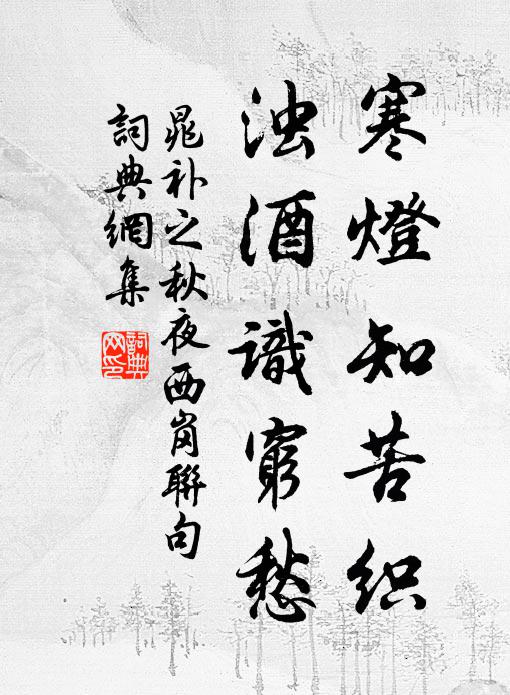 寒燈知苦织
浊酒識窮愁
晁补之秋夜西岗聯句
詞典網集
詞典网印